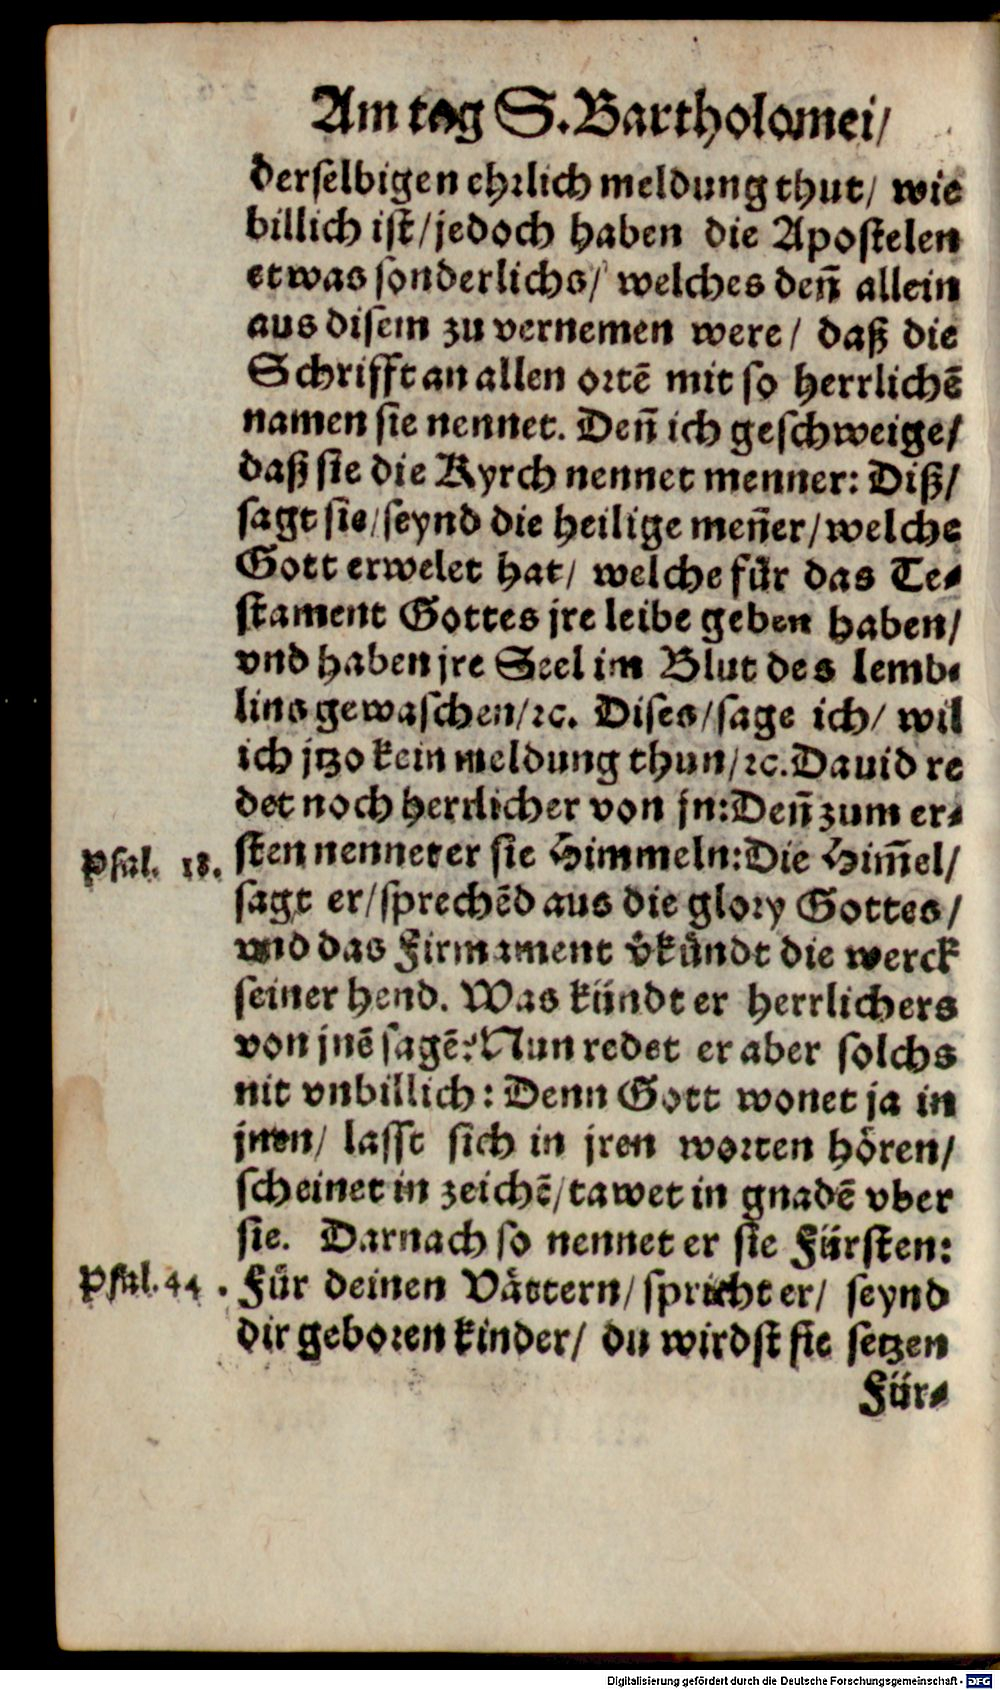 Am tag S. Bartholomei/
derselbigen ehrlich meldung thut/ wie
billich ist/ jedoch haben die Apostelen
etwas sonderlichs/ welches deñ allein
aus disem zu vernemen were/ daß die
Schrifft an allen ortē mit so herrlichē
namen sie nennet. Deñ ich geschweige/
daß sie die Kyrch nennet menner: Diß/
sagt sie/ seynd die heilige meñer/ welche
Gott erwelet hat/ welche für das Te-
stament Gottes jre leibe geben haben/
vnd haben jre Seel im Blut des lemb-
lins gewaschen/ ꝛc. Dises/ sage ich/ wil
ich jtzo kein meldung thun/ ꝛc. Dauid re
det noch herrlicher von jn: Deñ zum er-
Psal. 18. sten nennet er sie Himmeln: Die Him̃el/
sagt er/ sprechēd aus die glory Gottes/
vnd das Firmament v̊kündt die werck
seiner hend. Was kündt er herrlichers
von jnē sagē? Nun redet er aber solchs
nit vnbillich: Denn Gott wonet ja in
jnen/ lasst sich in jren worten hören/
scheinet in zeichē/ tawet in gnadē vber
sie. Darnach so nennet er sie Fürsten:
Psal. 44. Für deinen Vättern/ spricht er/ seynd
dir geboren kinder/ du wirdst sie setzen
Für-
Digitalisierung gefördert durch die Deutsche Forschungsgemeinschaft - DFG